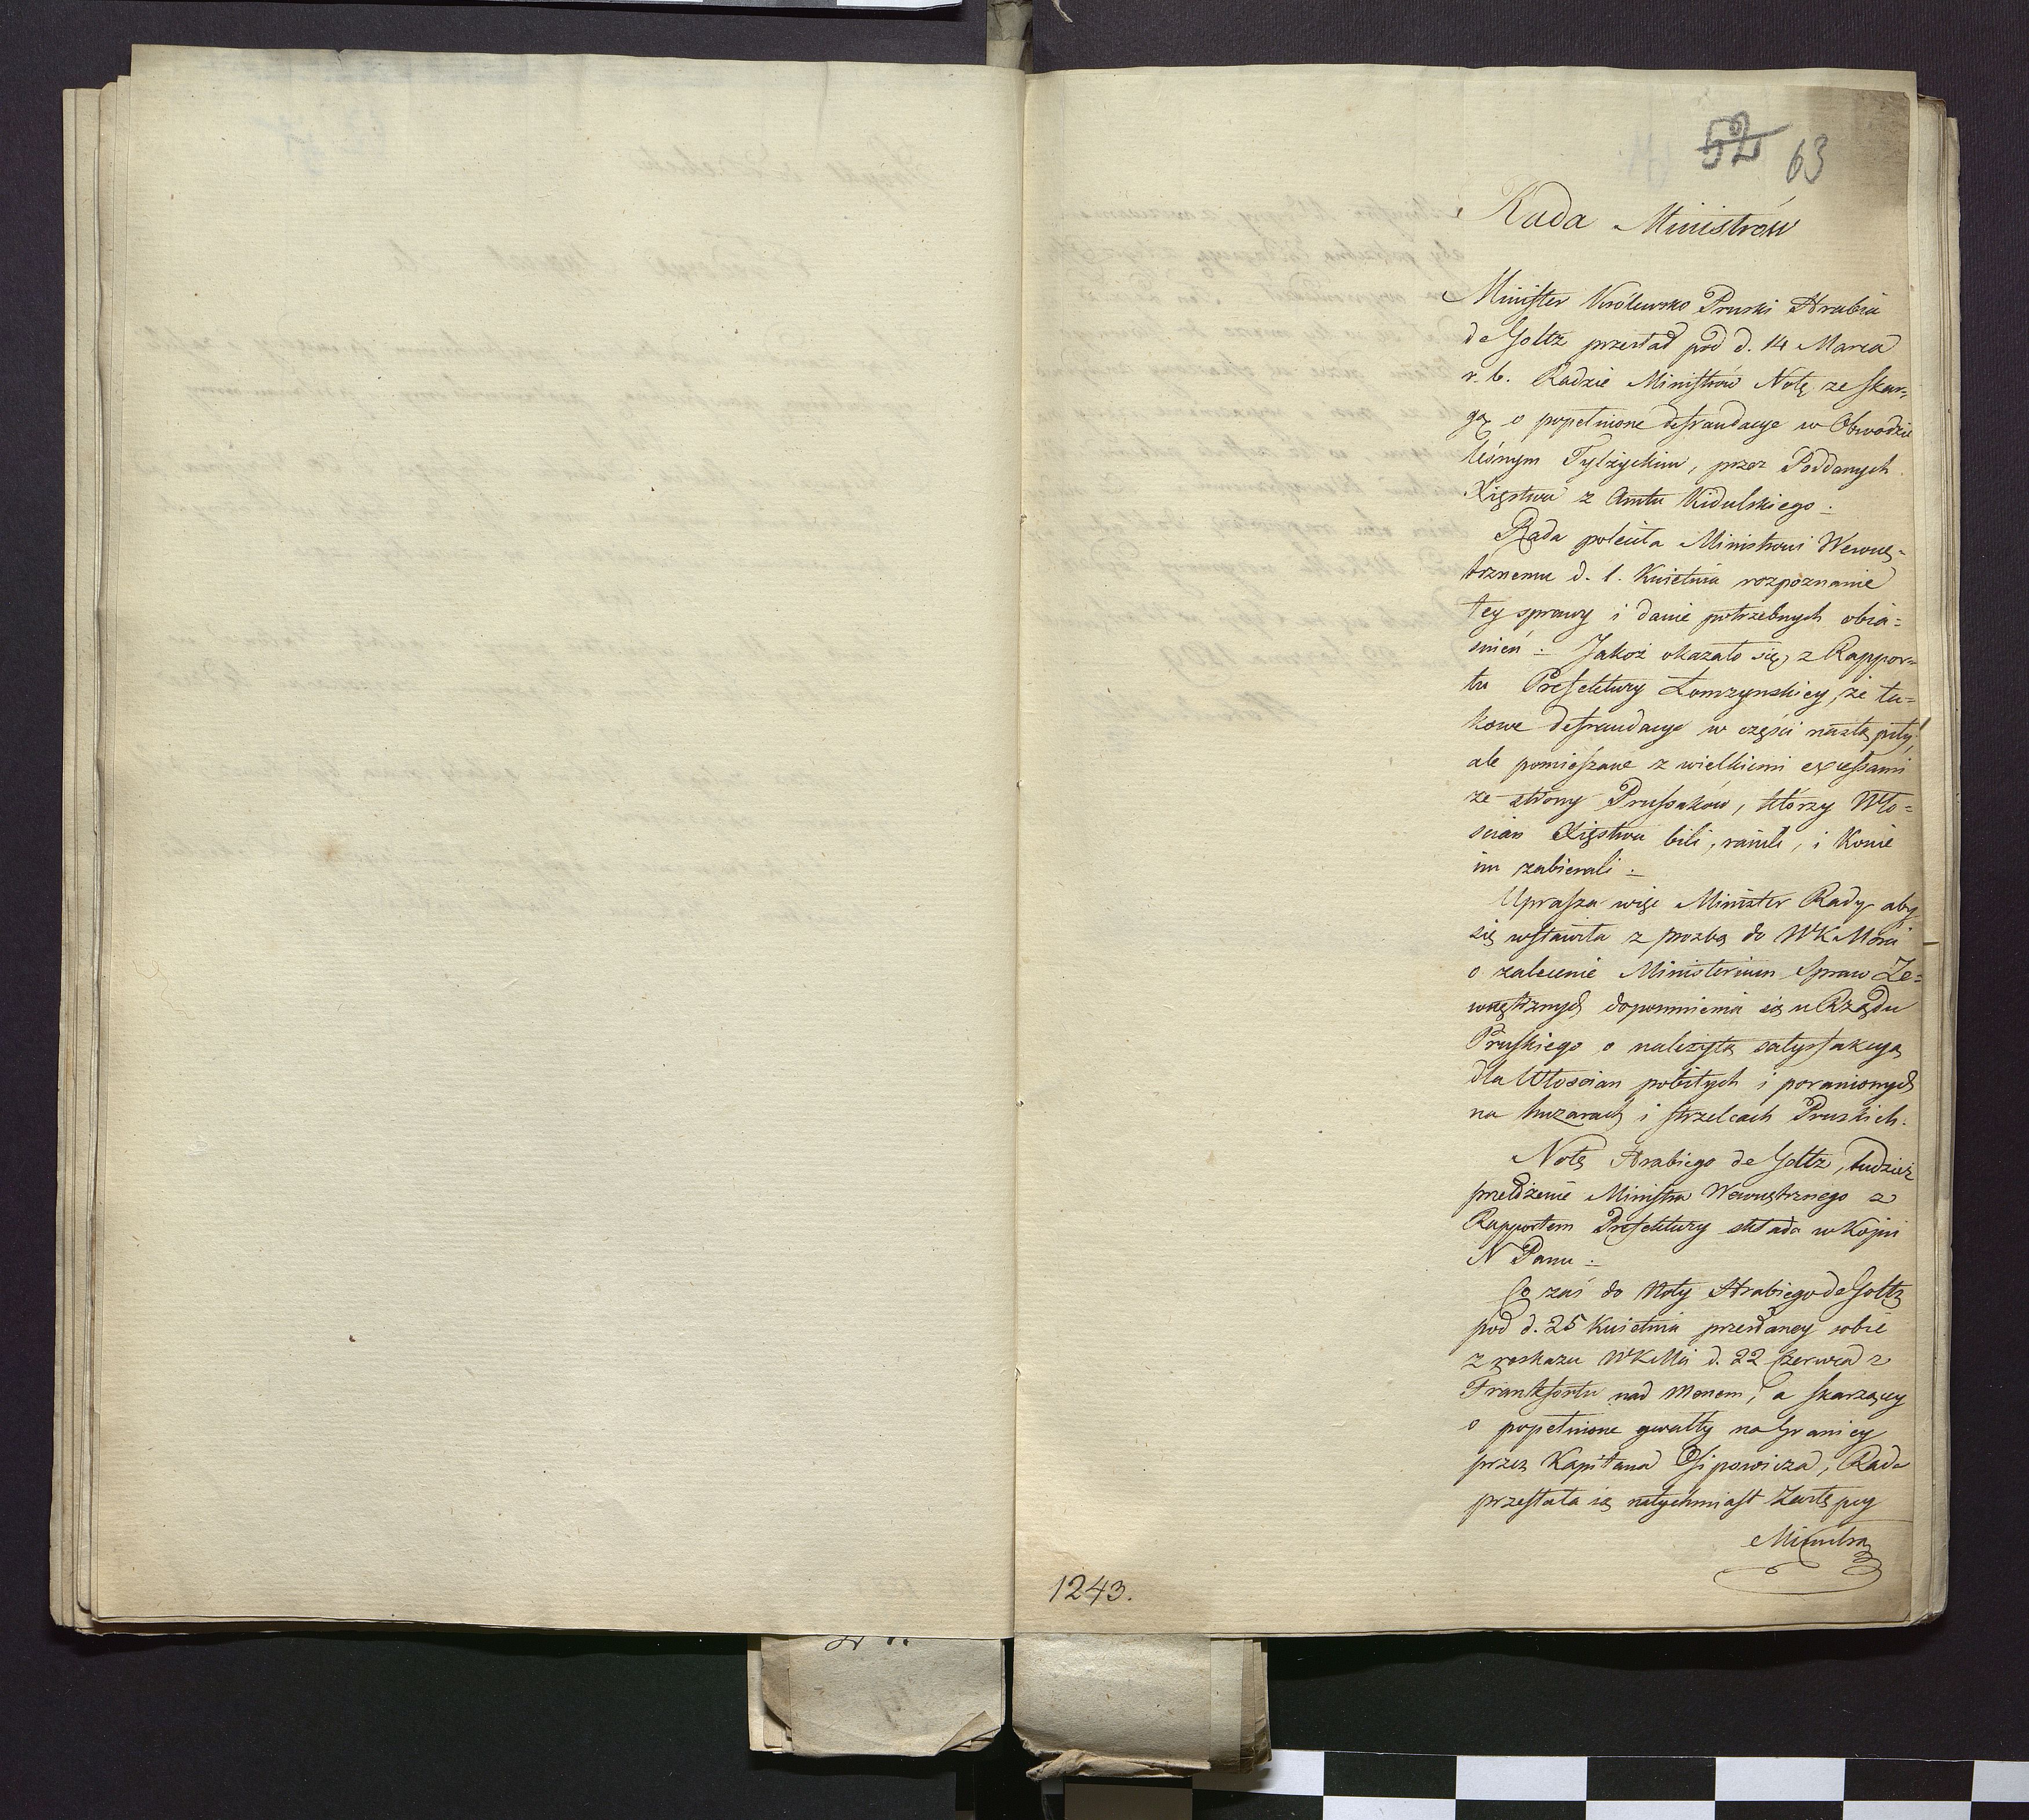 52 63
Rada Ministrów
Minister Królewsko Pruski Hrabia
de Goltz przesłał pod d. 14 Marca
r. b. Radzie Ministrów Notę ze skar=
gą o popełnione defraudacye w Obwodzie
leśnym Tylżyckim, przez Poddanych
Xięstwa z Amtu Kidulskiego.
Rada poleciła Ministrowi Wewnę=
trznemu d. 1. Kwietnia rozpoznanie
tey sprawy i danie potrzebnych obia=
snień. Jakoż okazało się z Rappor=
tu Prefektury Łomzynskiey, że ta=
kowe defraudacye w części nastąpiły,
ale pomieszane z wielkiemi excessami
ze strony Prussaków, którzy Wło=
scian Xięstwa bili, ranili, i Konie
im zabierali.
Uprasza więc Minister Rady aby
się wstawiła z prozbą do WKMści
o zalecenie Ministerium Spraw Ze=
wnętrznych dopomnienia się u Rządu
Pruskiego o należytą satysfakcyą
dla Włoscian pobitych i poranionych
na huzarach i strzelcach Pruskich.
Notę Hrabiego de Goltz, tudzież
przełożenie Ministra Wewnętrznego z
Rapportem Prefektury składa w Kopii
N Panu.
Co zaś do Noty Hrabiego de Goltz
pod d. 25 Kwietnia przesłaney sobie
z roskazu WKMci d. 22 Czerwca z
Frankfortu nad Menem, a skarżącey
o popełnione gwałty na Granicy
przez Kapitana Osipowicza, Rada
przesłała ią natychmiast Zastępcy
Ministra
1243.